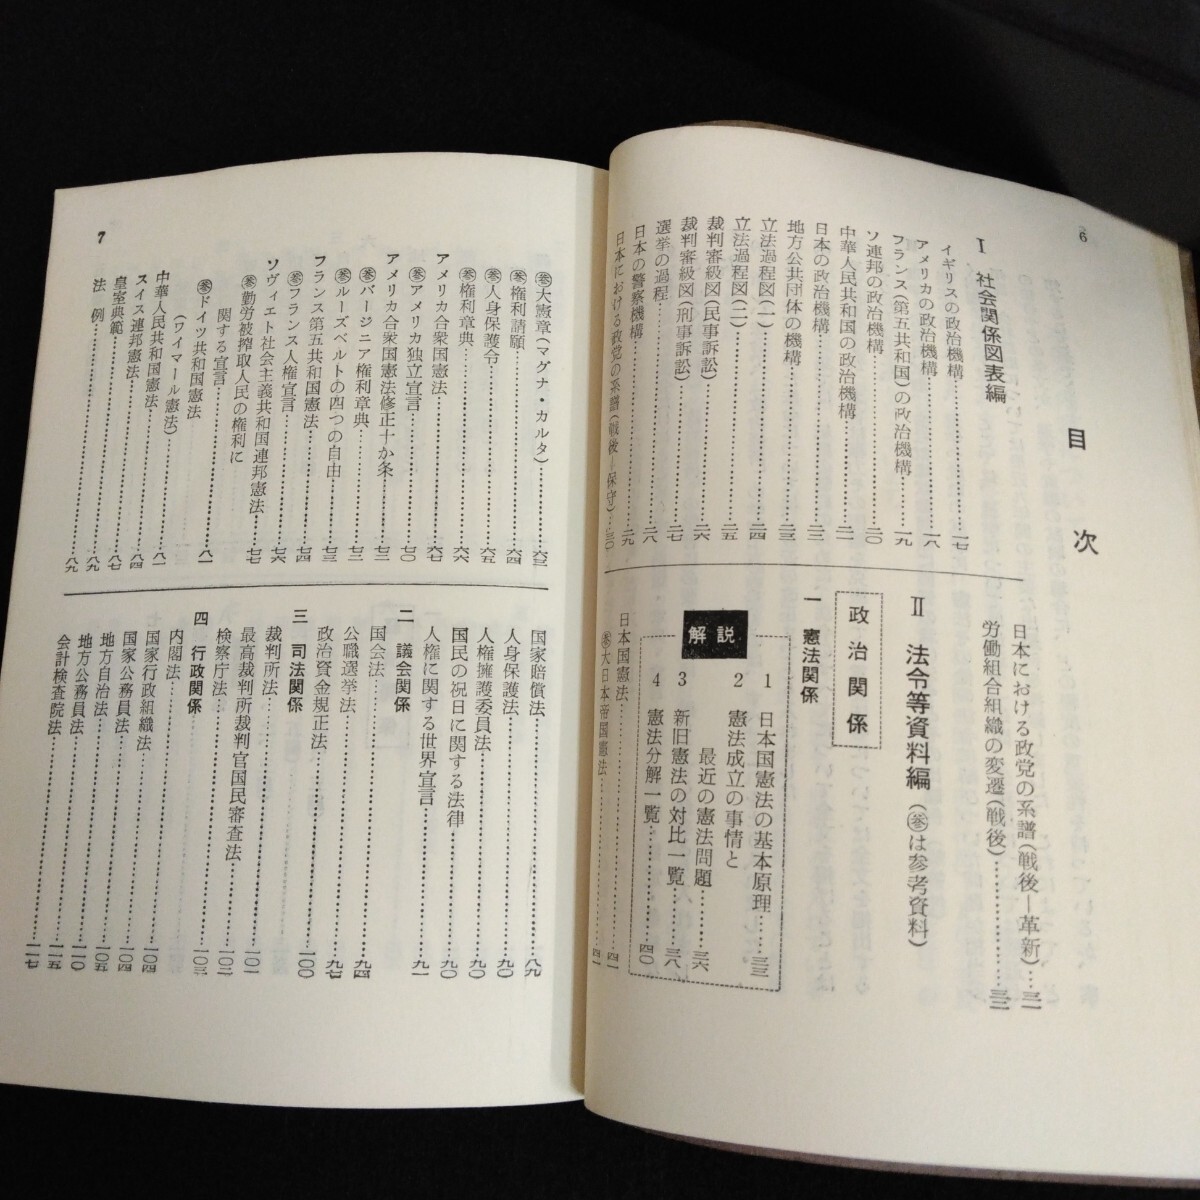 6
目次
Ⅰ 社会関係図表編
イギリスの政治機構……一七
アメリカの政治機構……一八
フランス(第五共和国)の政治機構……一九
ソ連邦の政治機構……二〇
中華人民共和国の政治機構……二一
日本の政治機構……二二
地方公共団体の機構……二三
立法過程図(一)……二四
立法過程図(二)……二五
裁判審級図(民事訴訟)……二六
裁判審級図(刑事訴訟)……二七
選挙の過程……二八
日本の警察機構……二九
日本における政党の系譜(戦後―保守)……三〇
日本における政党の系譜(戦後―革新)…三一
労働組合組織の変遷(戦後)……三二
Ⅱ 法令等資料編(㊂は参考資料)
政治関係
一 憲法関係
解説
1 日本国憲法の基本原理……三三
2 憲法成立の事情と
最近の憲法問題……三六
3 新旧憲法の対比一覧……三八
4 憲法分解一覧……四〇
日本国憲法……四一
大日本帝国憲法……四一
7
大憲章(マグナ・カルタ)……六三
権利請願……六四
人身保護令……六五
権利章典……六六
アメリカ合衆国憲法……六七
アメリカ独立宣言……七〇
アメリカ合衆国憲法修正十か条……七二
バージニア権利章典……七三
ルーズベルトの四つの自由……七三
フランス第五共和国憲法……七四
フランス人権宣言……七六
ソヴィエト社会主義共和国連邦憲法……七七
勤労被搾取人民の権利に
関する宣言……八一
ドイツ共和国憲法
(ワイマール憲法)……八一
中華人民共和国憲法……八一
スイス連邦憲法……八四
皇室典範……八七
法例……八九
国家賠償法……八九
人身保護法……九〇
人権擁護委員法……九〇
国民の祝日に関する法律……九〇
人権に関する世界宣言……九一
二 議会関係
国会法……九一
公職選挙法……九四
政治資金規正法……九七
三 司法関係
裁判所法……一〇〇
最高裁判所裁判官国民審査法……一〇一
検察庁法……一〇二
四 行政関係
内閣法……一〇三
国家行政組織法……一〇四
国家公務員法……一〇四
地方自治法……一〇五
地方公務員法……一一〇
会計検査院法……一一五